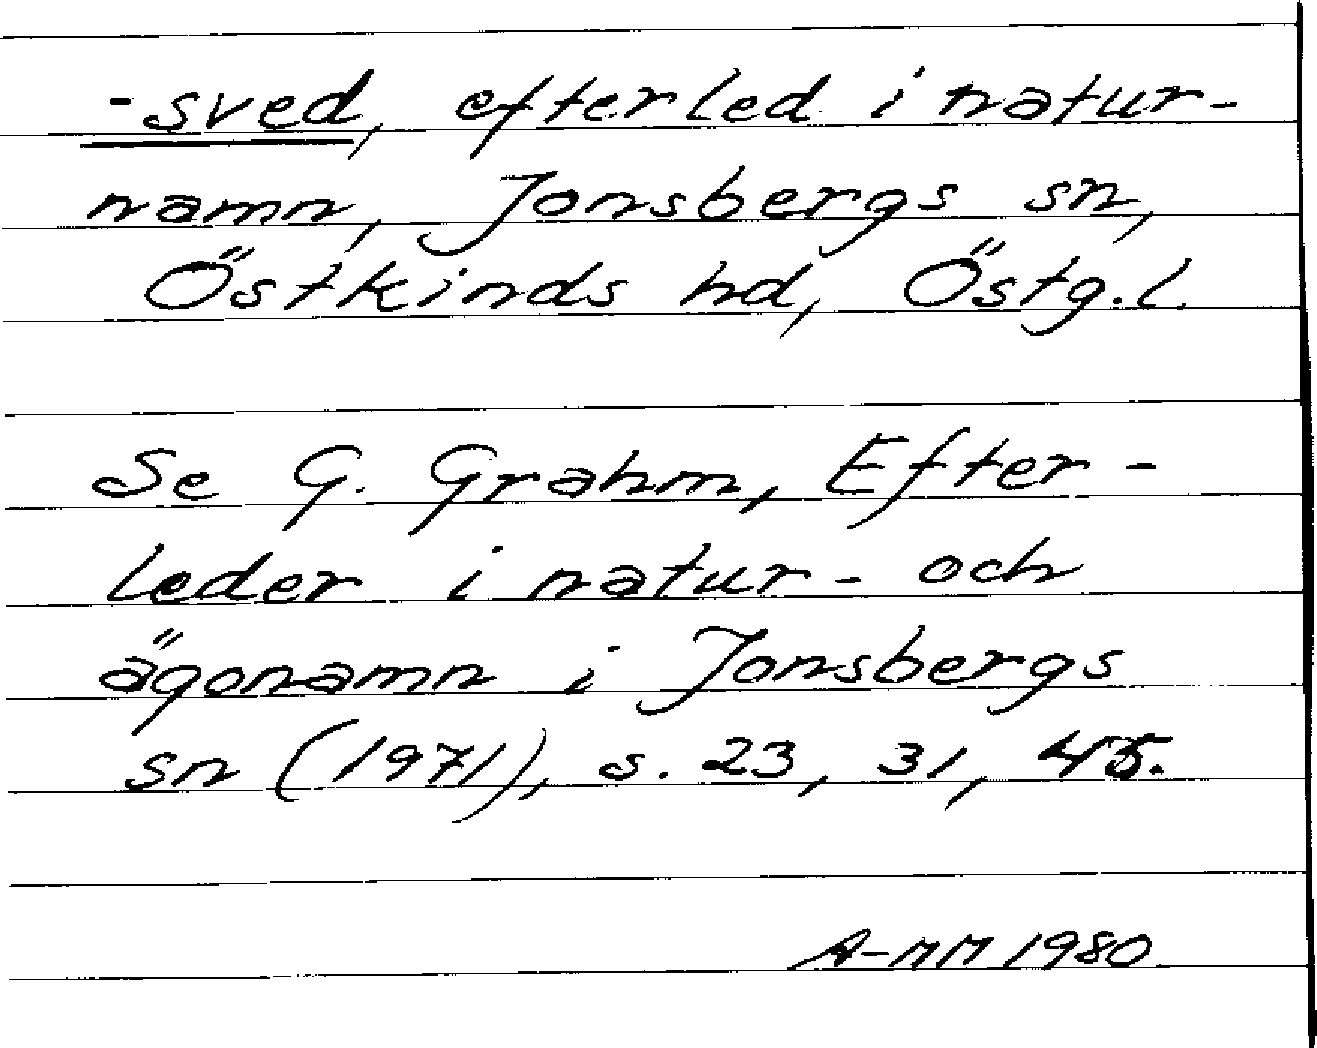 -sved, efterled i natur-
namn, Jonsbergs sn,
Östkinds hd, Östg.l.
Se G. Grahm, Efter-
leder i natur- och
ägonamn i Jonsbergs
sn (1971), s. 23, 31, 45.
A-MM 1980